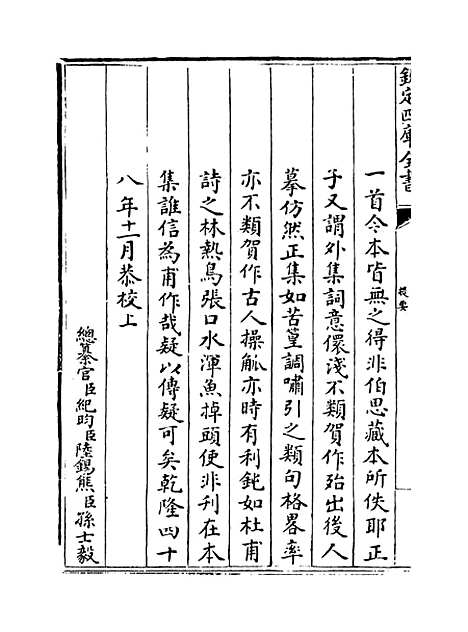 欽定四庫全書
提要
一首令本皆無之得非伯思藏本所佚耶正
子又謂外集詞意儇淺不類賀作殆出後人
摹仿然正集如苦篁調嘯引之類句格畧率
亦不類賀作古人操觚亦時有利鈍如杜甫
詩之林熱鳥張口水渾魚掉頭使非刋在本
集誰信為甫作哉疑以傳疑可矣乾隆四十
八年十一月恭校上
總纂官臣紀昀臣陸錫熊臣孫士毅